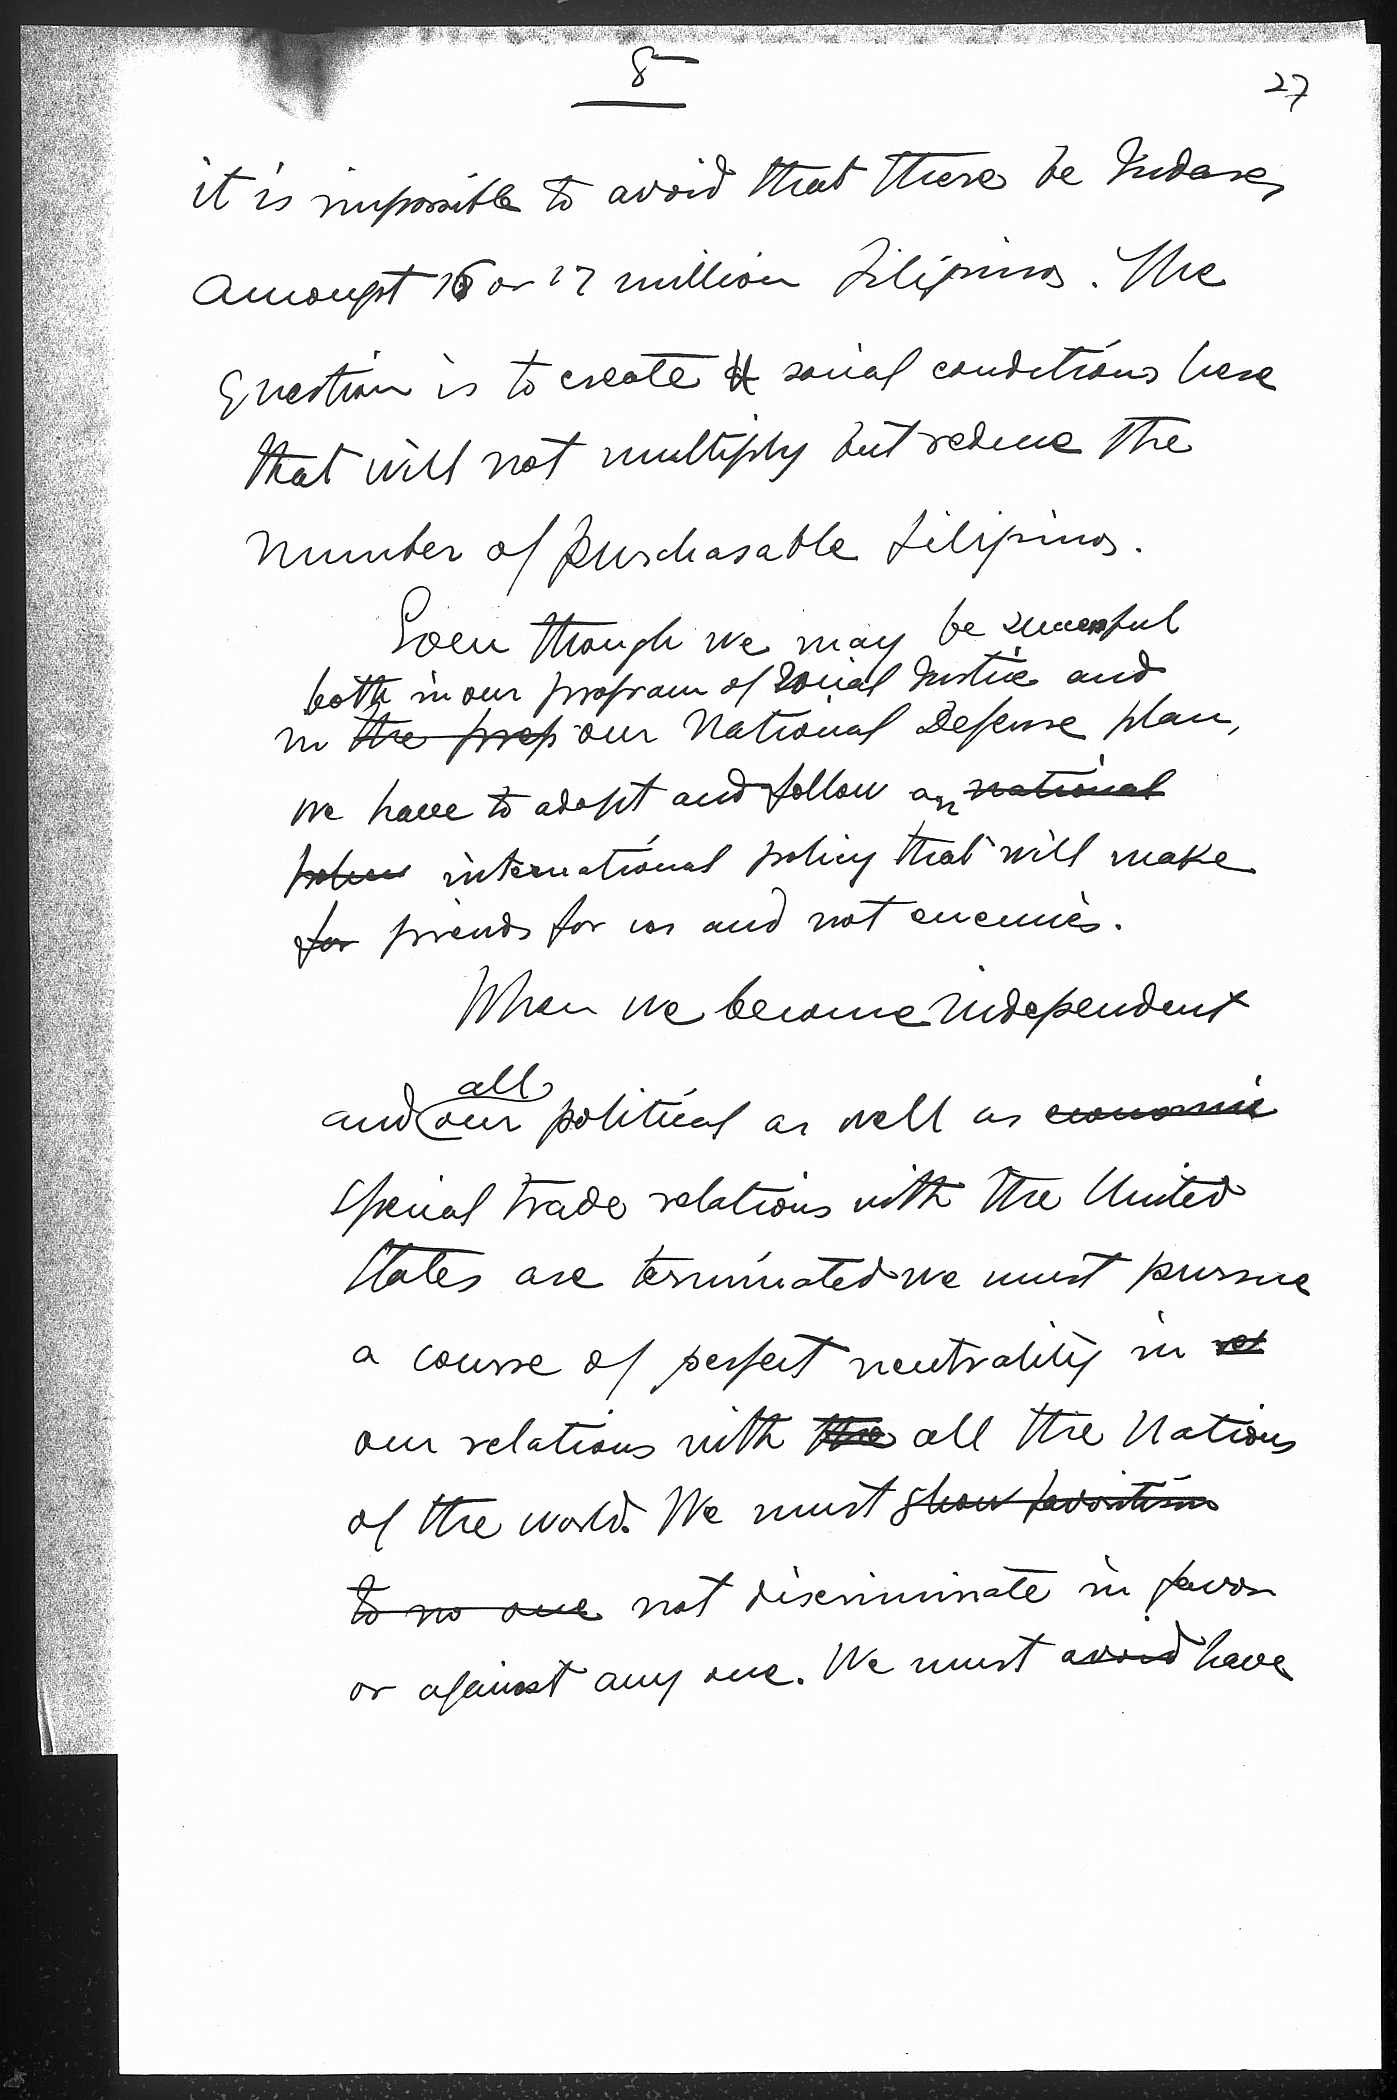 8
27
it is impossible to avoid that there be Judases
amongst 16 or 17 million Filipinos. The
question is to create social conditions here
that will not multiply but reduce the
number of purchasable Filipinos.
Even though we may be successful
both in our program of Social Justice and
in the prop our National Defense plan,
we have to adopt and follow an national
international policy that will make
for friends for us and not enemies.
When we become independent
all
and our political as well as economic
special trade relations with the United
States are terminated we must pursue
a course of perfect neutrality in rel
our relations with the all the Nations
of the world. We must show favoritism
to no one not discriminate in favor
or against any one. We must avoid have